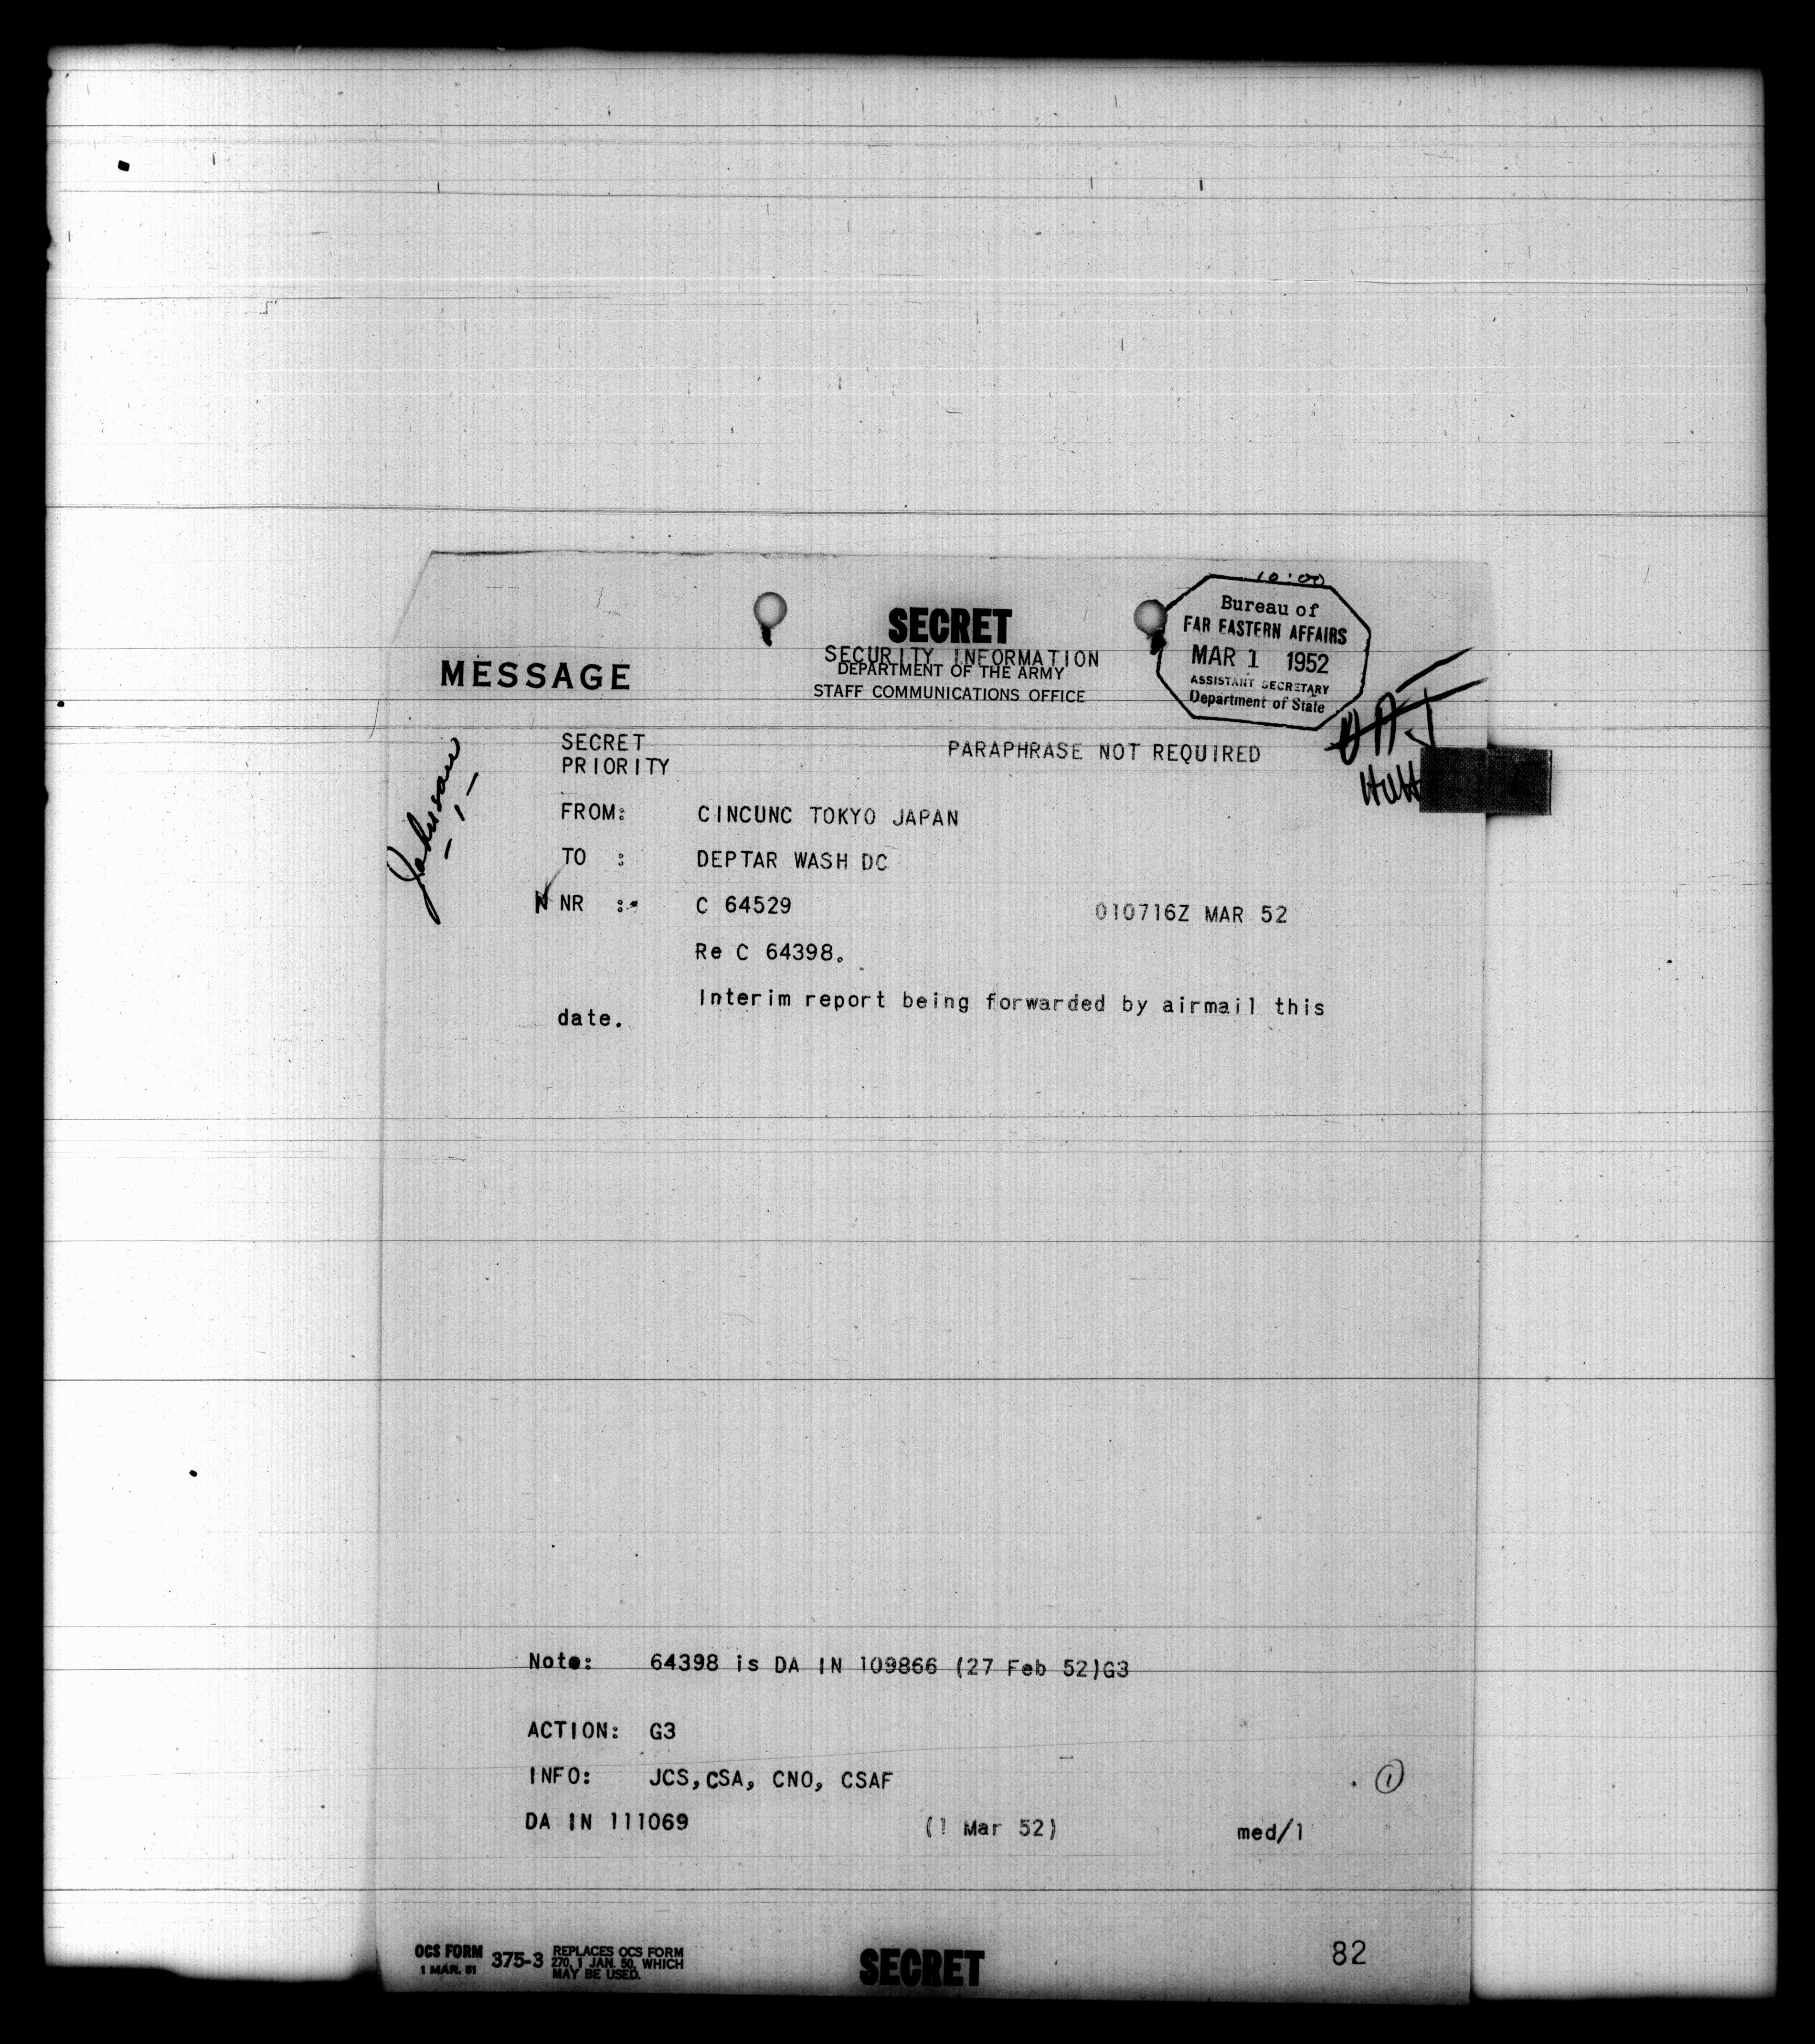 10:00
SECRET
SECURITY INFORMATION
MESSAGE
DEPARTMENT OF THE ARMY
STAFF COMMUNICATIONS OFFICE
Bureau of
FAR EASTERN AFFAIRS
MAR 1 1952
ASSISTANT SECRETARY
Department of State
Johnson
SECRET PARAPHRASE NOT REQUIRED
PRIORITY
FROM: CINCUNC TOKYO JAPAN
TO : DEPTAR WASH DC
N NR : C 64529 010716Z MAR 52
Re C 64398.
Interim report being forwarded by airmail this
date.
Note: 64398 is DA IN 109866 (27 Feb 52)G3
ACTION: G3
INFO: JCS, CSA, CNO, CSAF
1
DA IN 111069 (1 Mar 52) med/1
OCS FORM 375-3 REPLACES OCS FORM
1 MAR. 51 270, 1 JAN. 50, WHICH
MAY BE USED.
SECRET
82